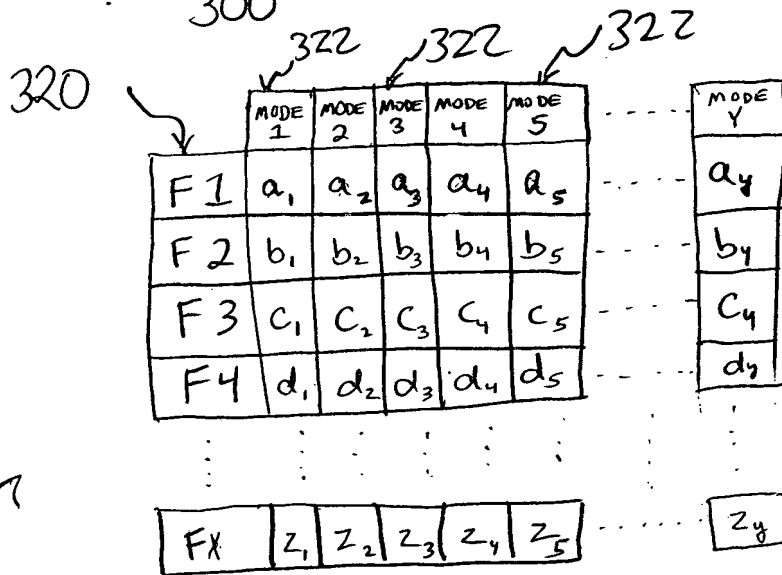 300
322 322 322
320
MODE 1 MODE 2 MODE 3 MODE 4 MODE 5 MODE Y
F1 a₁ a₂ a₃ a₄ a₅ ay
F2 b₁ b₂ b₃ b₄ b₅ by
F3 C₁ C₂ C₃ C₄ C₅ Cy
F4 d₁ d₂ d₃ d₄ d₅ dy
FX Z₁ Z₂ Z₃ Z₄ Z₅ Zy